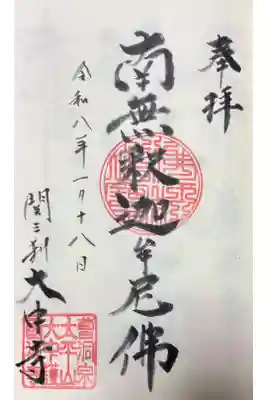 奉拝
南無釈迦牟尼佛
令和八年一月十八日
関三刹
大中寺
曹洞宗
太平山